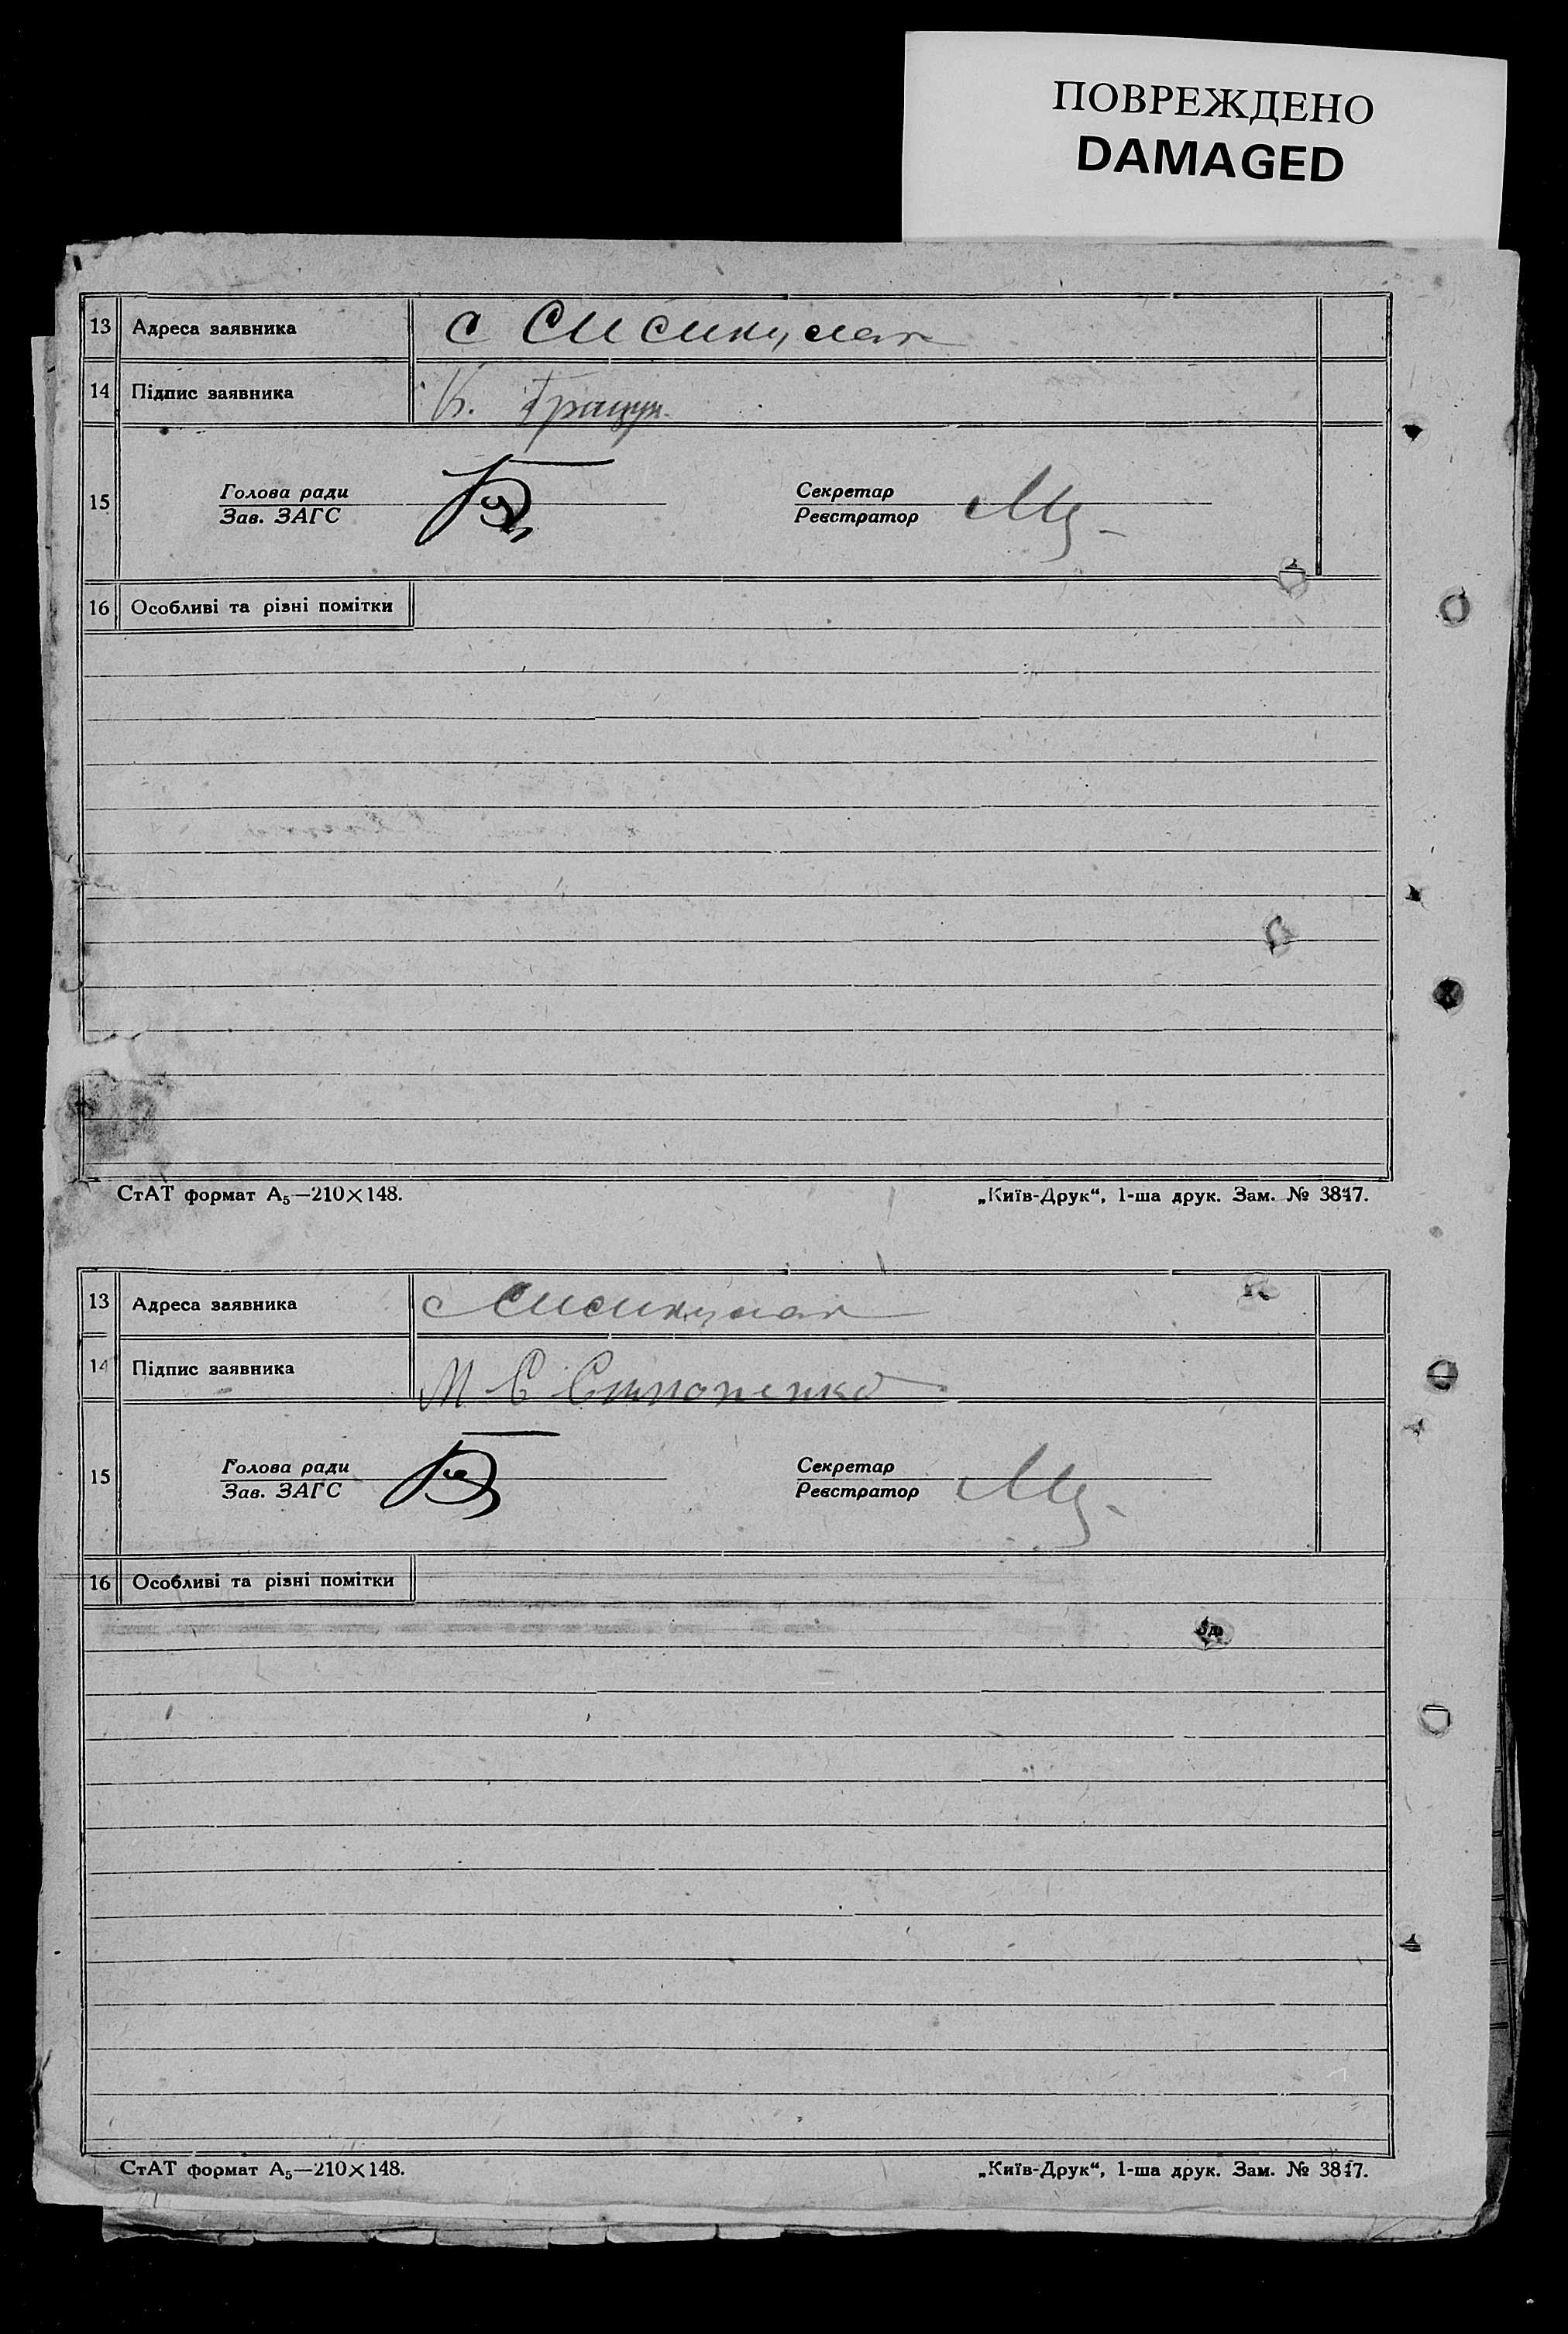 ПОВРЕЖДЕНО
DAMAGED
13 Адреса заявника с
14 Підпис заявника К.
15 Голова ради Секретар
Зав. ЗАГС Реєстратор
16 Особливі та різні помітки
СтАТ формат А5—210×148. „Київ-Друк“, 1-ша друк. Зам. № 3847.
13 Адреса заявника с
14 Підпис заявника М Є
15 Голова ради Секретар
Зав. ЗАГС Реєстратор
16 Особливі та різні помітки
СтАТ формат А5—210×148. „Київ-Друк“, 1-ша друк. Зам. № 3847.